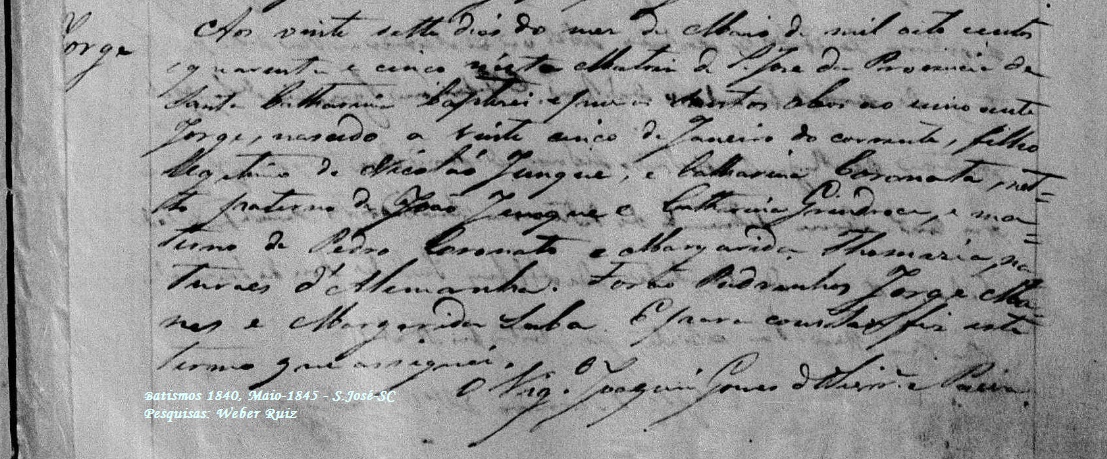 Jorge
Aos vinte sette dias do mez de Maio de mil oito centos
e quarenta e cinco nesta Matriz de S. Jose da Provincia de
Santa Catharina baptizei e puz os Santos oleos ao innocente
Jorge, nascido a vinte cinco de Janeiro do corrente, filho
legitimo de Nicoláo Junque, e Catharina Coronata, net=
to paterno de João Junque e Catharina e ma=
terno de Pedro Coronato e Margarida Thomazia, na
turaes d'Alemanha. Forão Padrinhos Jorge Ma=
nes e Margarida Luba. E para constar fiz este
termo que assignei.
O Vigº Joaquim Gomes d'Oliveirª e Paiva.
Batismos 1840, Maio-1845 - S.José-SC
Pesquisas: Weber Ruiz